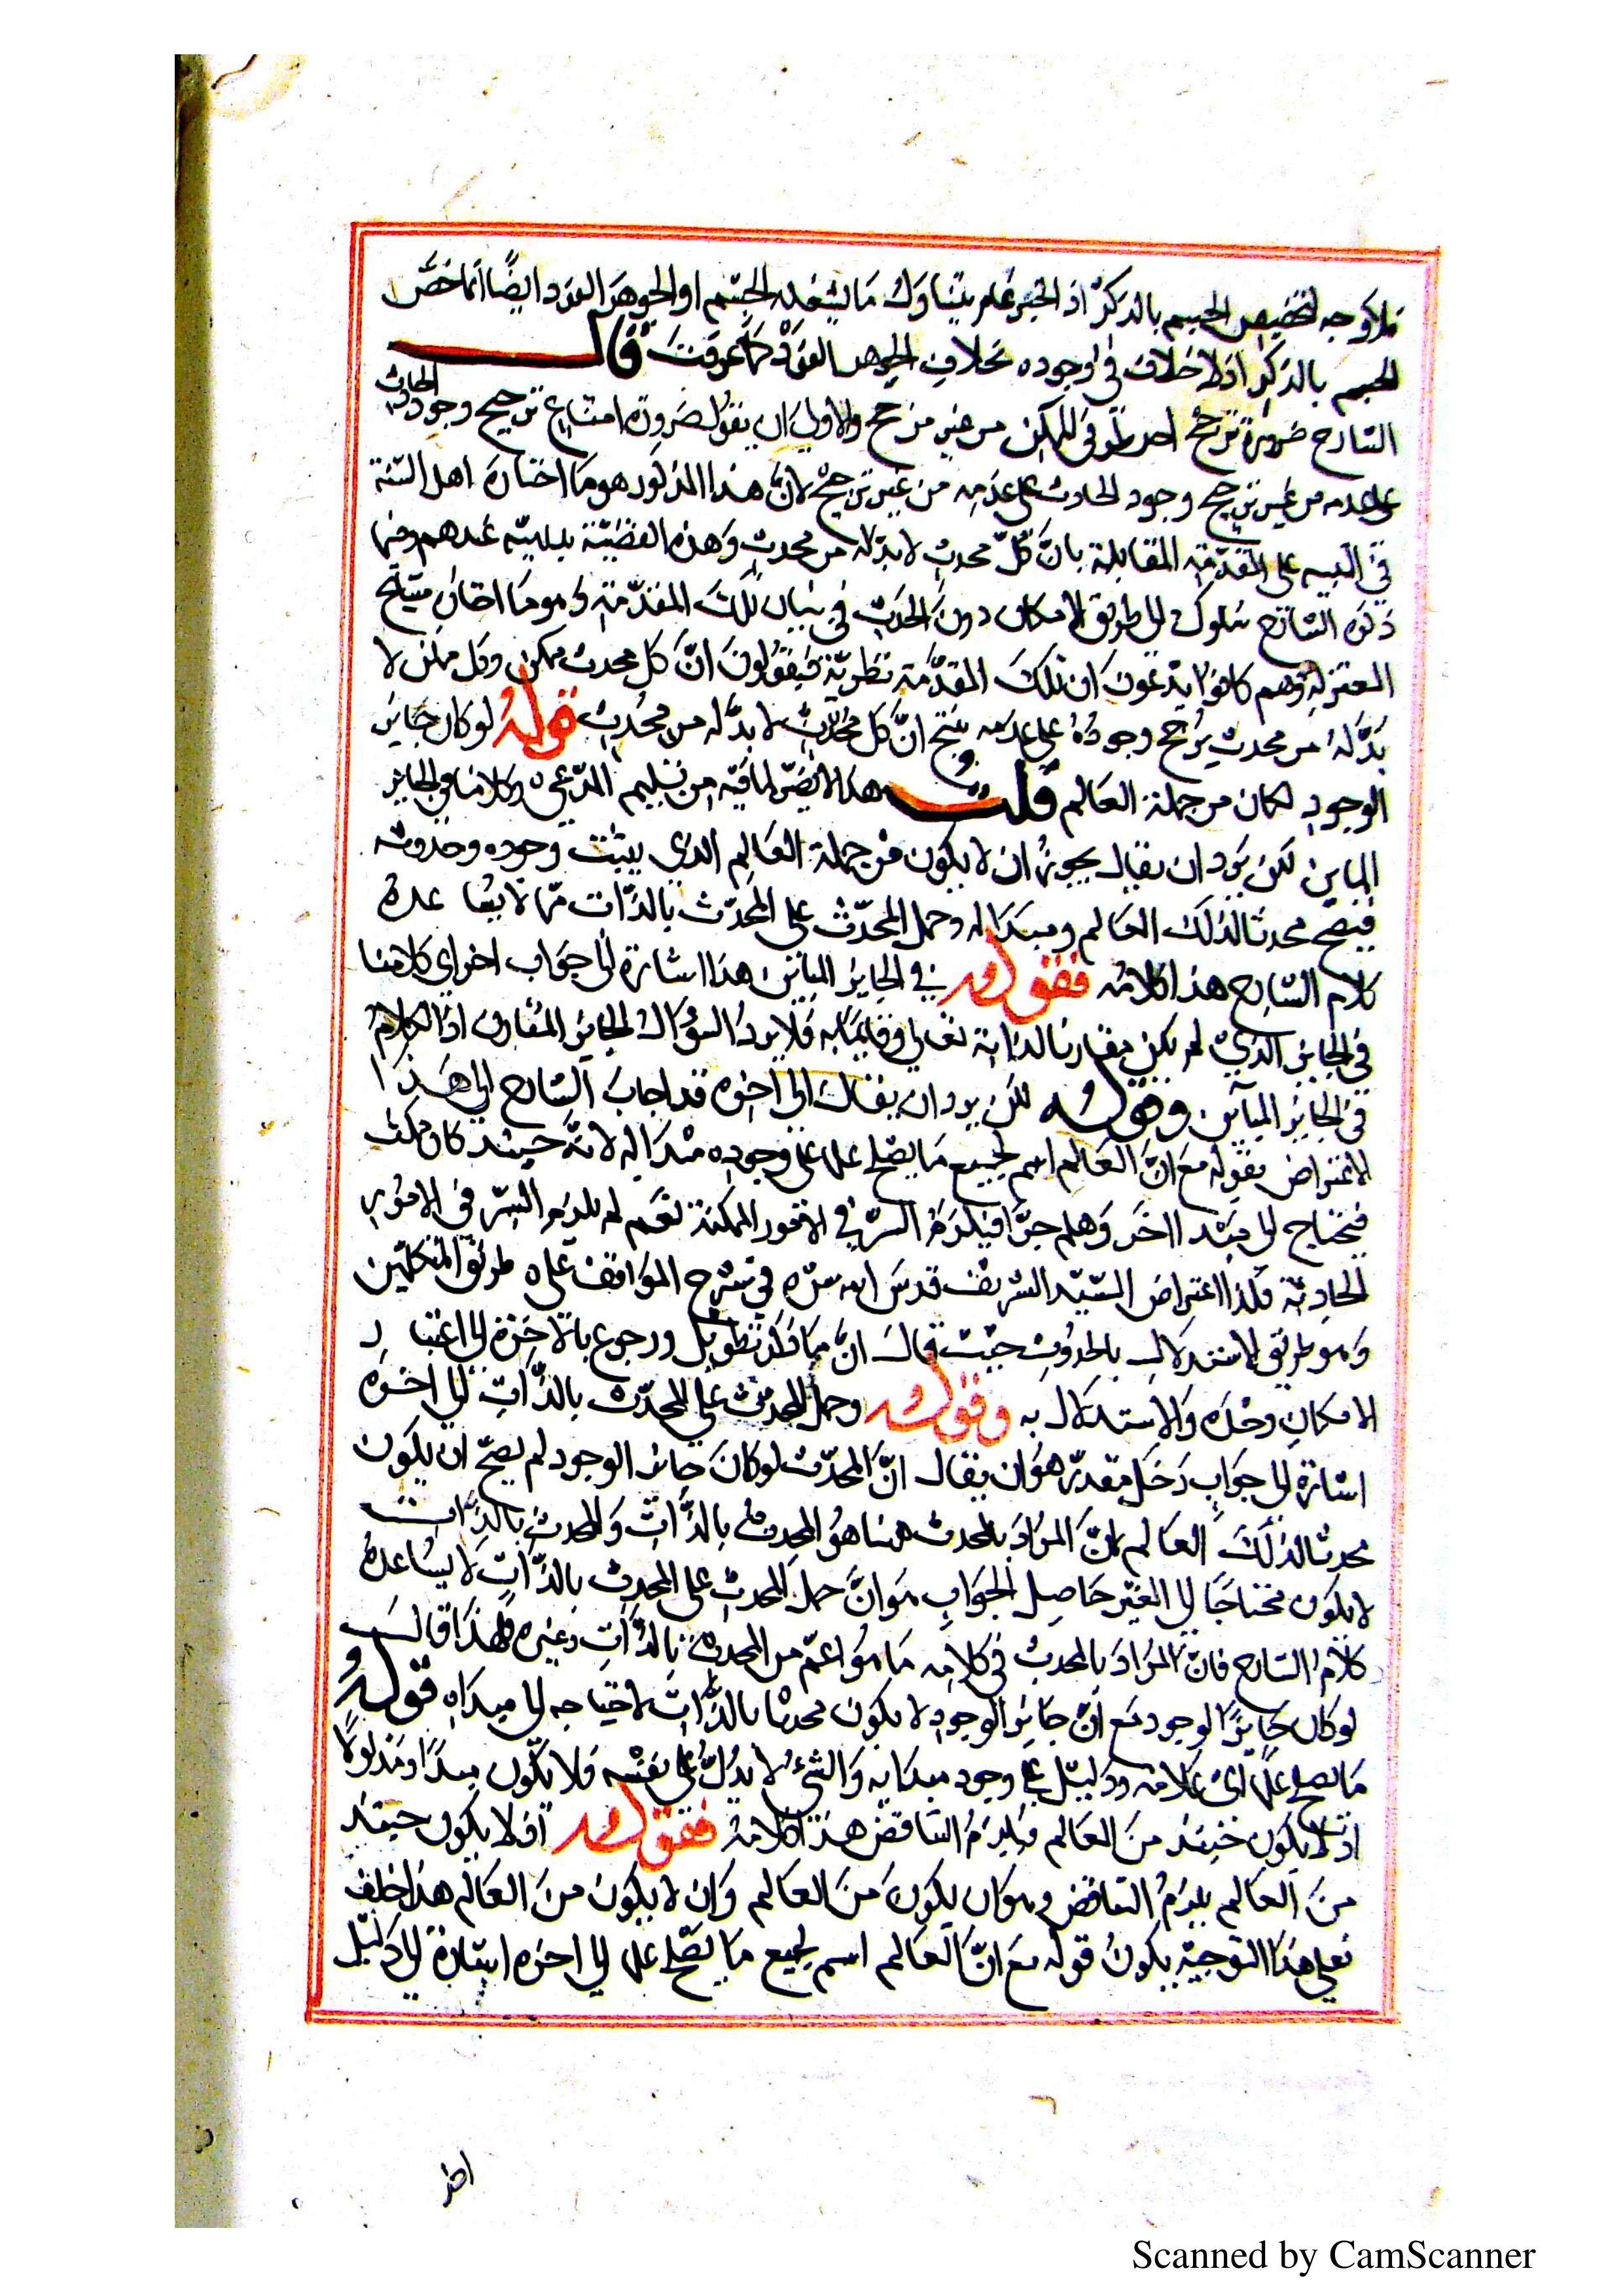 فلا وجه لتخصيص الجسم بالذكر اذ الحيز عام يتناول ما يشغله الجسم او الجوهر الفرد ايضًا انما خصّ
الجسم بالذكر اذ لا خلاف في وجوده بخلاف الجوهر الفرد كما عرفت قال
الشارح ضرورة ترجح احد طرفي الممكن من غير مرجح والاولى ان يقول ضرورة امتناع ترجيح وجود الحادث
على عدمه من غير ترجيح وجود الحادث على عدمه من غير ترجيح لانّ هذا المذكور هو ما اختاره اهل السّنة
في التنبيه على المقدّمة المقابلة بانّ كلّ محدث لا بدّ له من محدث وهذه القضيّة بديهيّة عندهم وفيما
ذكره الشارح سلوك الى طريق الامكان دون الحدث في بيان تلك المقدّمة وهو ما اختاره مشايخ
المعتزلة وهم كانوا يدّعون ان تلك المقدّمة نظريّة فيقولون انّ كل محدث ممكن وكل ممكن لا
بدّ له من محدث يرجح وجوده على عدمه ينتج انّ كل محدث لا بدّ له من محدث قوله لو كان جايز
الوجود لكان من جملة العالم قلت هذا لا يضرّ لما فيه من تسليم المدّعى وكلامنا في الجايز
المباين لكن يرد ان يقال يجوز ان لا يكون من جملة العالم الذي يثبت وجوده وحدوثه
فيصح محدثا لذلك العالم ومبدَا له وحمل المحدث على المحدث بالذّات ممّا لا يساعده
كلام الشارح هذا كلامه فقوله في الجايز المباين هذا اشارة الى جواب اخر اي كلامنا
في الجايز الذي لم يكن مقارنا لذاته تعالى وقايمًا به فلا يرد السؤال الجايز المقارن اذ الكلام
في الجايز المباين وقوله لكن يرد ان يقال الى اخره قد اجاب الشارح الى هذا
الاعتراض بقوله مع انّ العالم اسم لجميع ما يصلح علما على وجوده مبدَا له لانه حينئذ كان ممكنا
فيحتاج الى مبدا اخر وهلم جرّا فيلزم التس في الامور الممكنة نعم لم يلزم التس في الامور
الحادثة فلذا اعتراض السّيّد الشريف قدس الله سره في شرح المواقف على طريق المتكلّمين
وهو طريق الاستدلال بالحدوث حيث قال انّ ما ذكر تطويل ورجوع بالاخرة الى اعتبار
الامكان وحده والاستدلال به وقوله وحمل المحدث على المحدث بالذّات الى اخره
اشارة الى جواب دخل مقدر هو ان يقال انّ المحدث لو كان جايز الوجود لم يصحّ ان يكون
محدثا لذلك العالم لانّ المراد بالمحدث هنا هو المحدث بالذّات والمحدث بالذّات
لا يكون محتاجًا الى الغير حاصل الجواب هو انّ حمل المحدث على المحدث بالذّات لا يساعده
كلام الشارح فانّ المراد بالمحدث في كلامه ما هو اعمّ من المحدث بالذّات وغيره فلهذا قال
لو كان جايز الوجود مع انّ جايز الوجود لا يكون محدثا بالذّات لاحتياجه الى مبداه قوله
ما يصلح علمًا اي علامة ودليل على وجود مبدا به والشئ لا يدلّ على نفسه فلا يكون مبدًا ومدلولًا
اذ لا يكون حينئذ من العالم فيلزم التناقض هذا كلامه فقوله اذ لا يكون حينئذ
من العالم يلزم التناقض وهو ان يكون من العالم وان لا يكون من العالم هذا خلف
فعلى هذا التوجيه يكون قوله مع انّ العالم اسم لجميع ما يصلح علما الى اخره اشارة الى دليل
Scanned by CamScanner